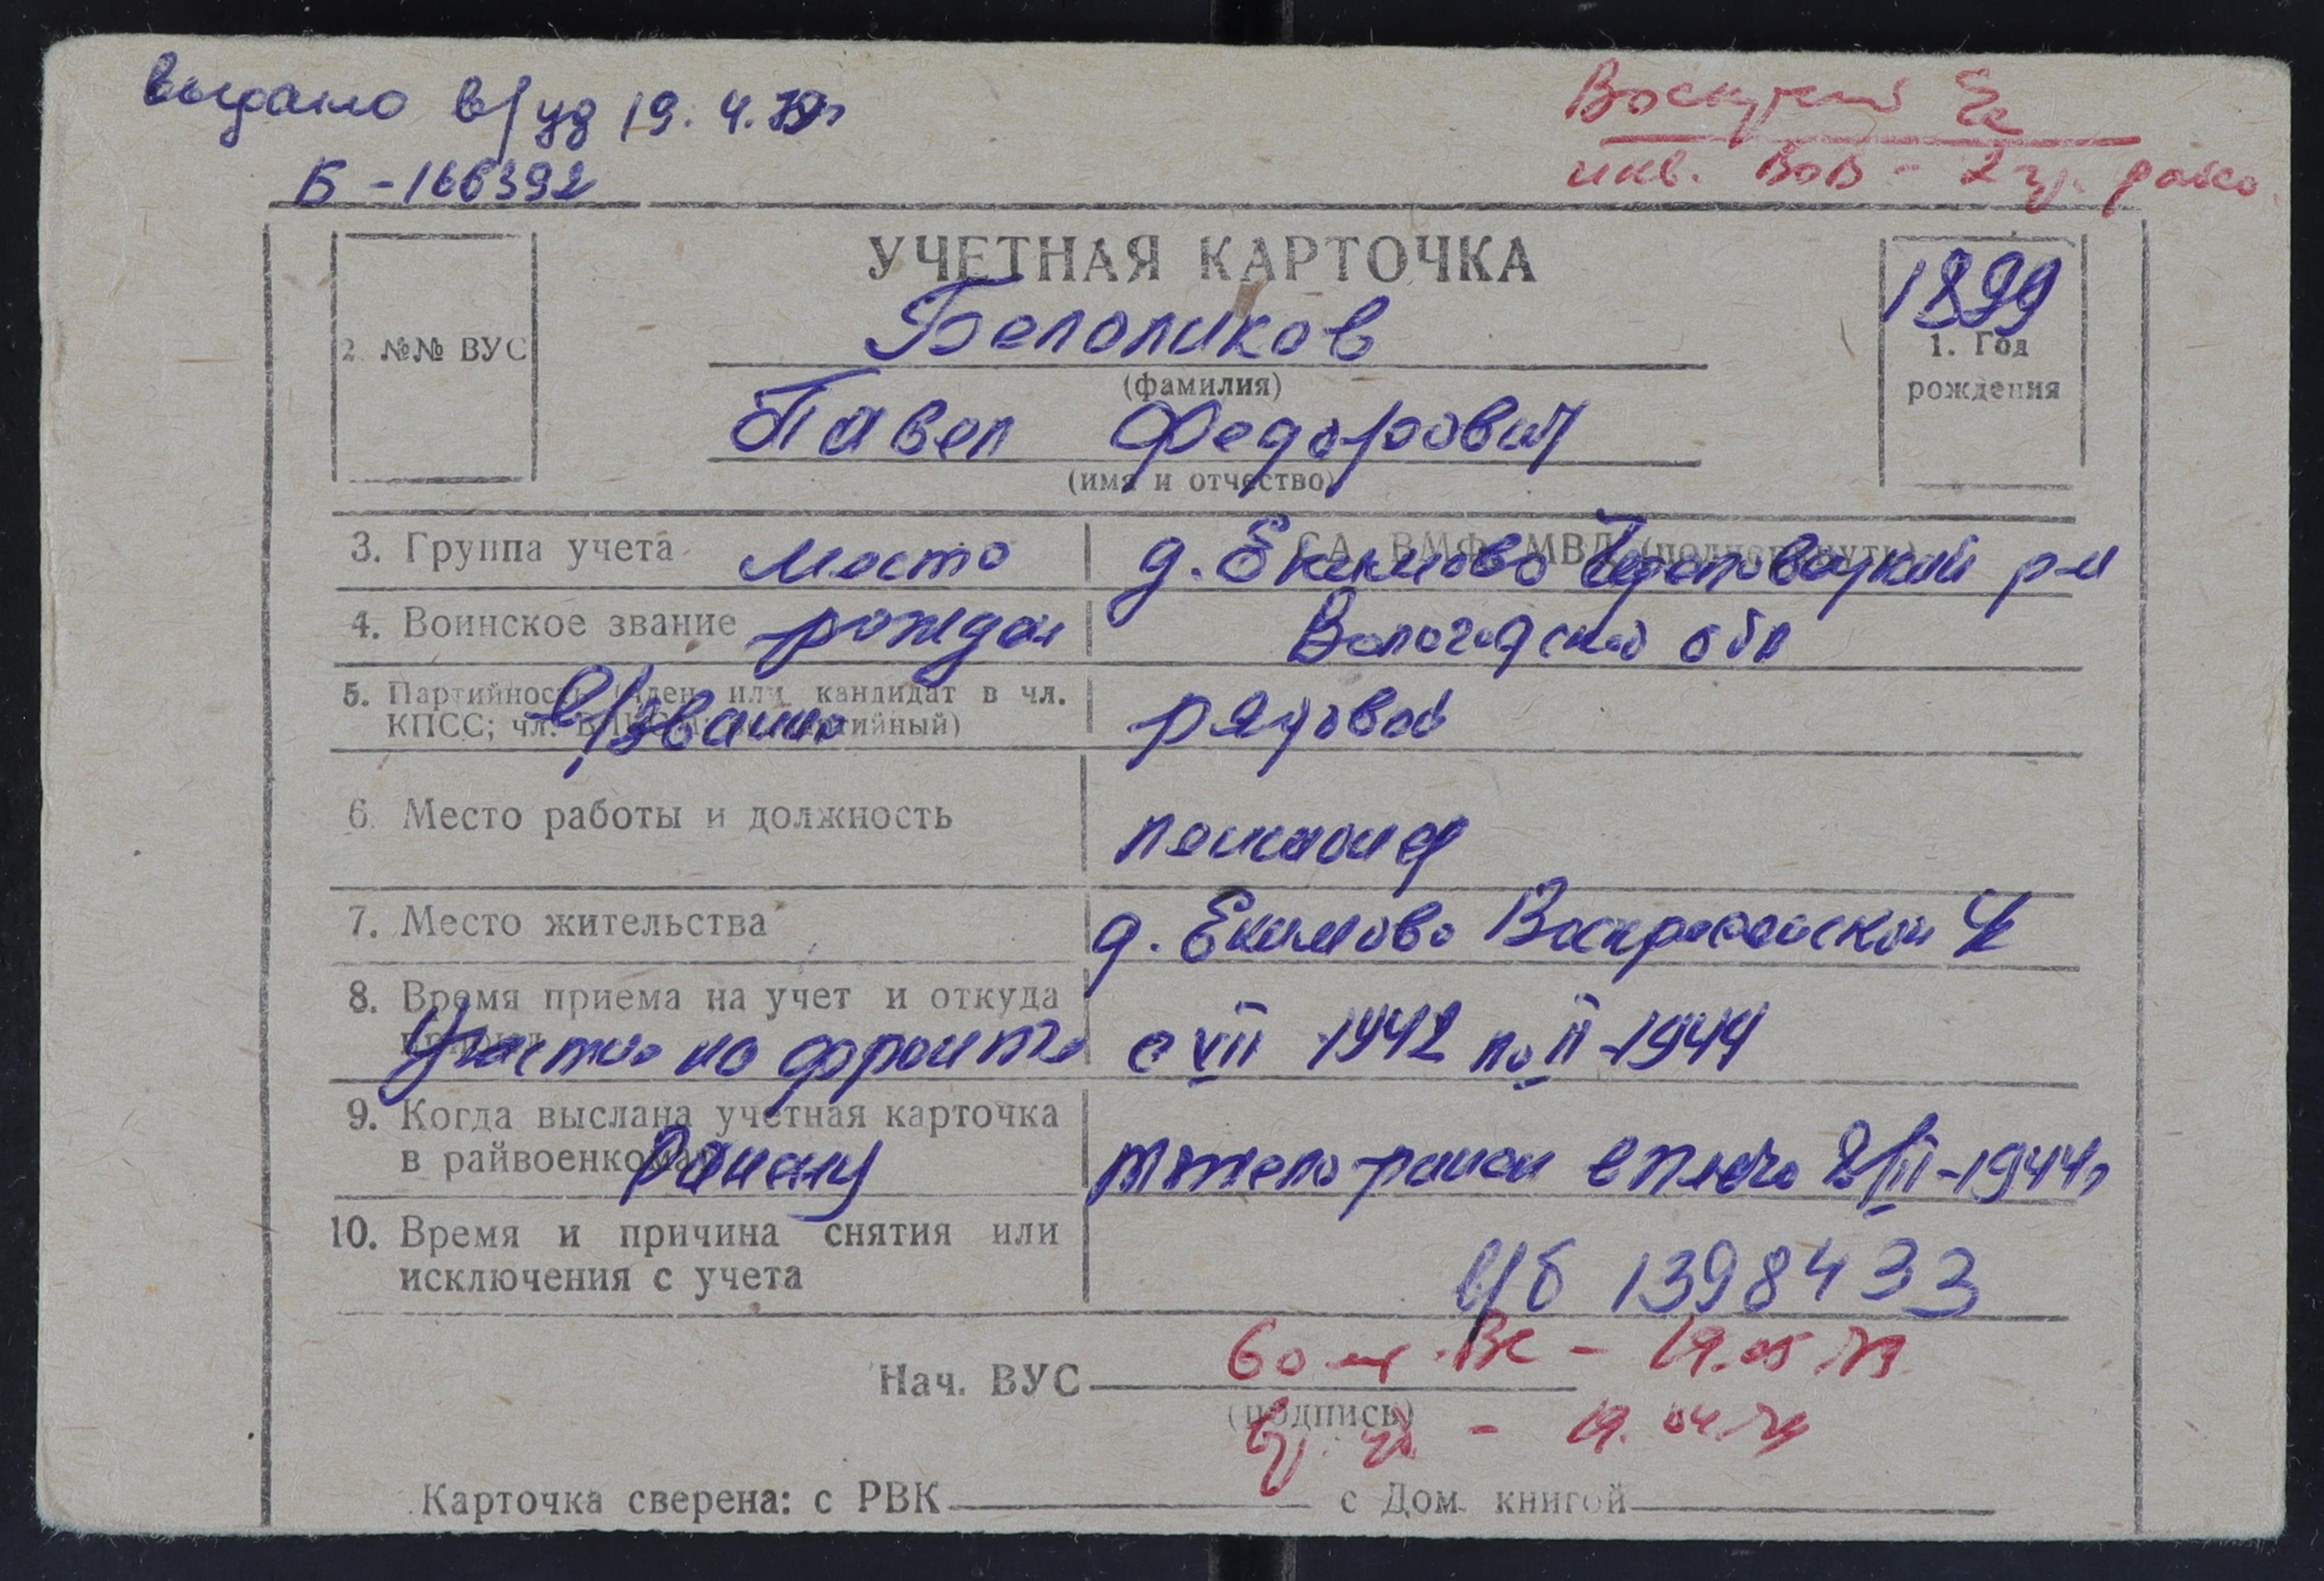 выдано в/уд 19.4.79г
Б-166392
инв. ВОВ - 2 гр.
УЧЕТНАЯ КАРТОЧКА
2. №№ ВУС
1899
1. Год
рождения
Белоликов
(фамилия)
Павел Федорович
(имя и отчество)
3. Группа учета место д. Екимово Череповецкий р-н
4. Воинское звание рожден Вологодской обл
5. Партийность (член или кандидат в чл.
КПСС; чл. ВЛКСМ; беспартийный)
в/звание рядовой
6. Место работы и должность пенсионер
7. Место жительства д. Екимово Воскресенский
8. Время приема на учет и откуда
Участие на фронте с VII 1942 по II-1944
9. Когда выслана учетная карточка
в райвоенкомат
тяжело ранен в плечо 2/II-1944г
10. Время и причина снятия или
исключения с учета
1398433
60 ВС - 19.05.79
Нач. ВУС
(подпись)
- 19.04.79
Карточка сверена: с РВК с Дом. книгой